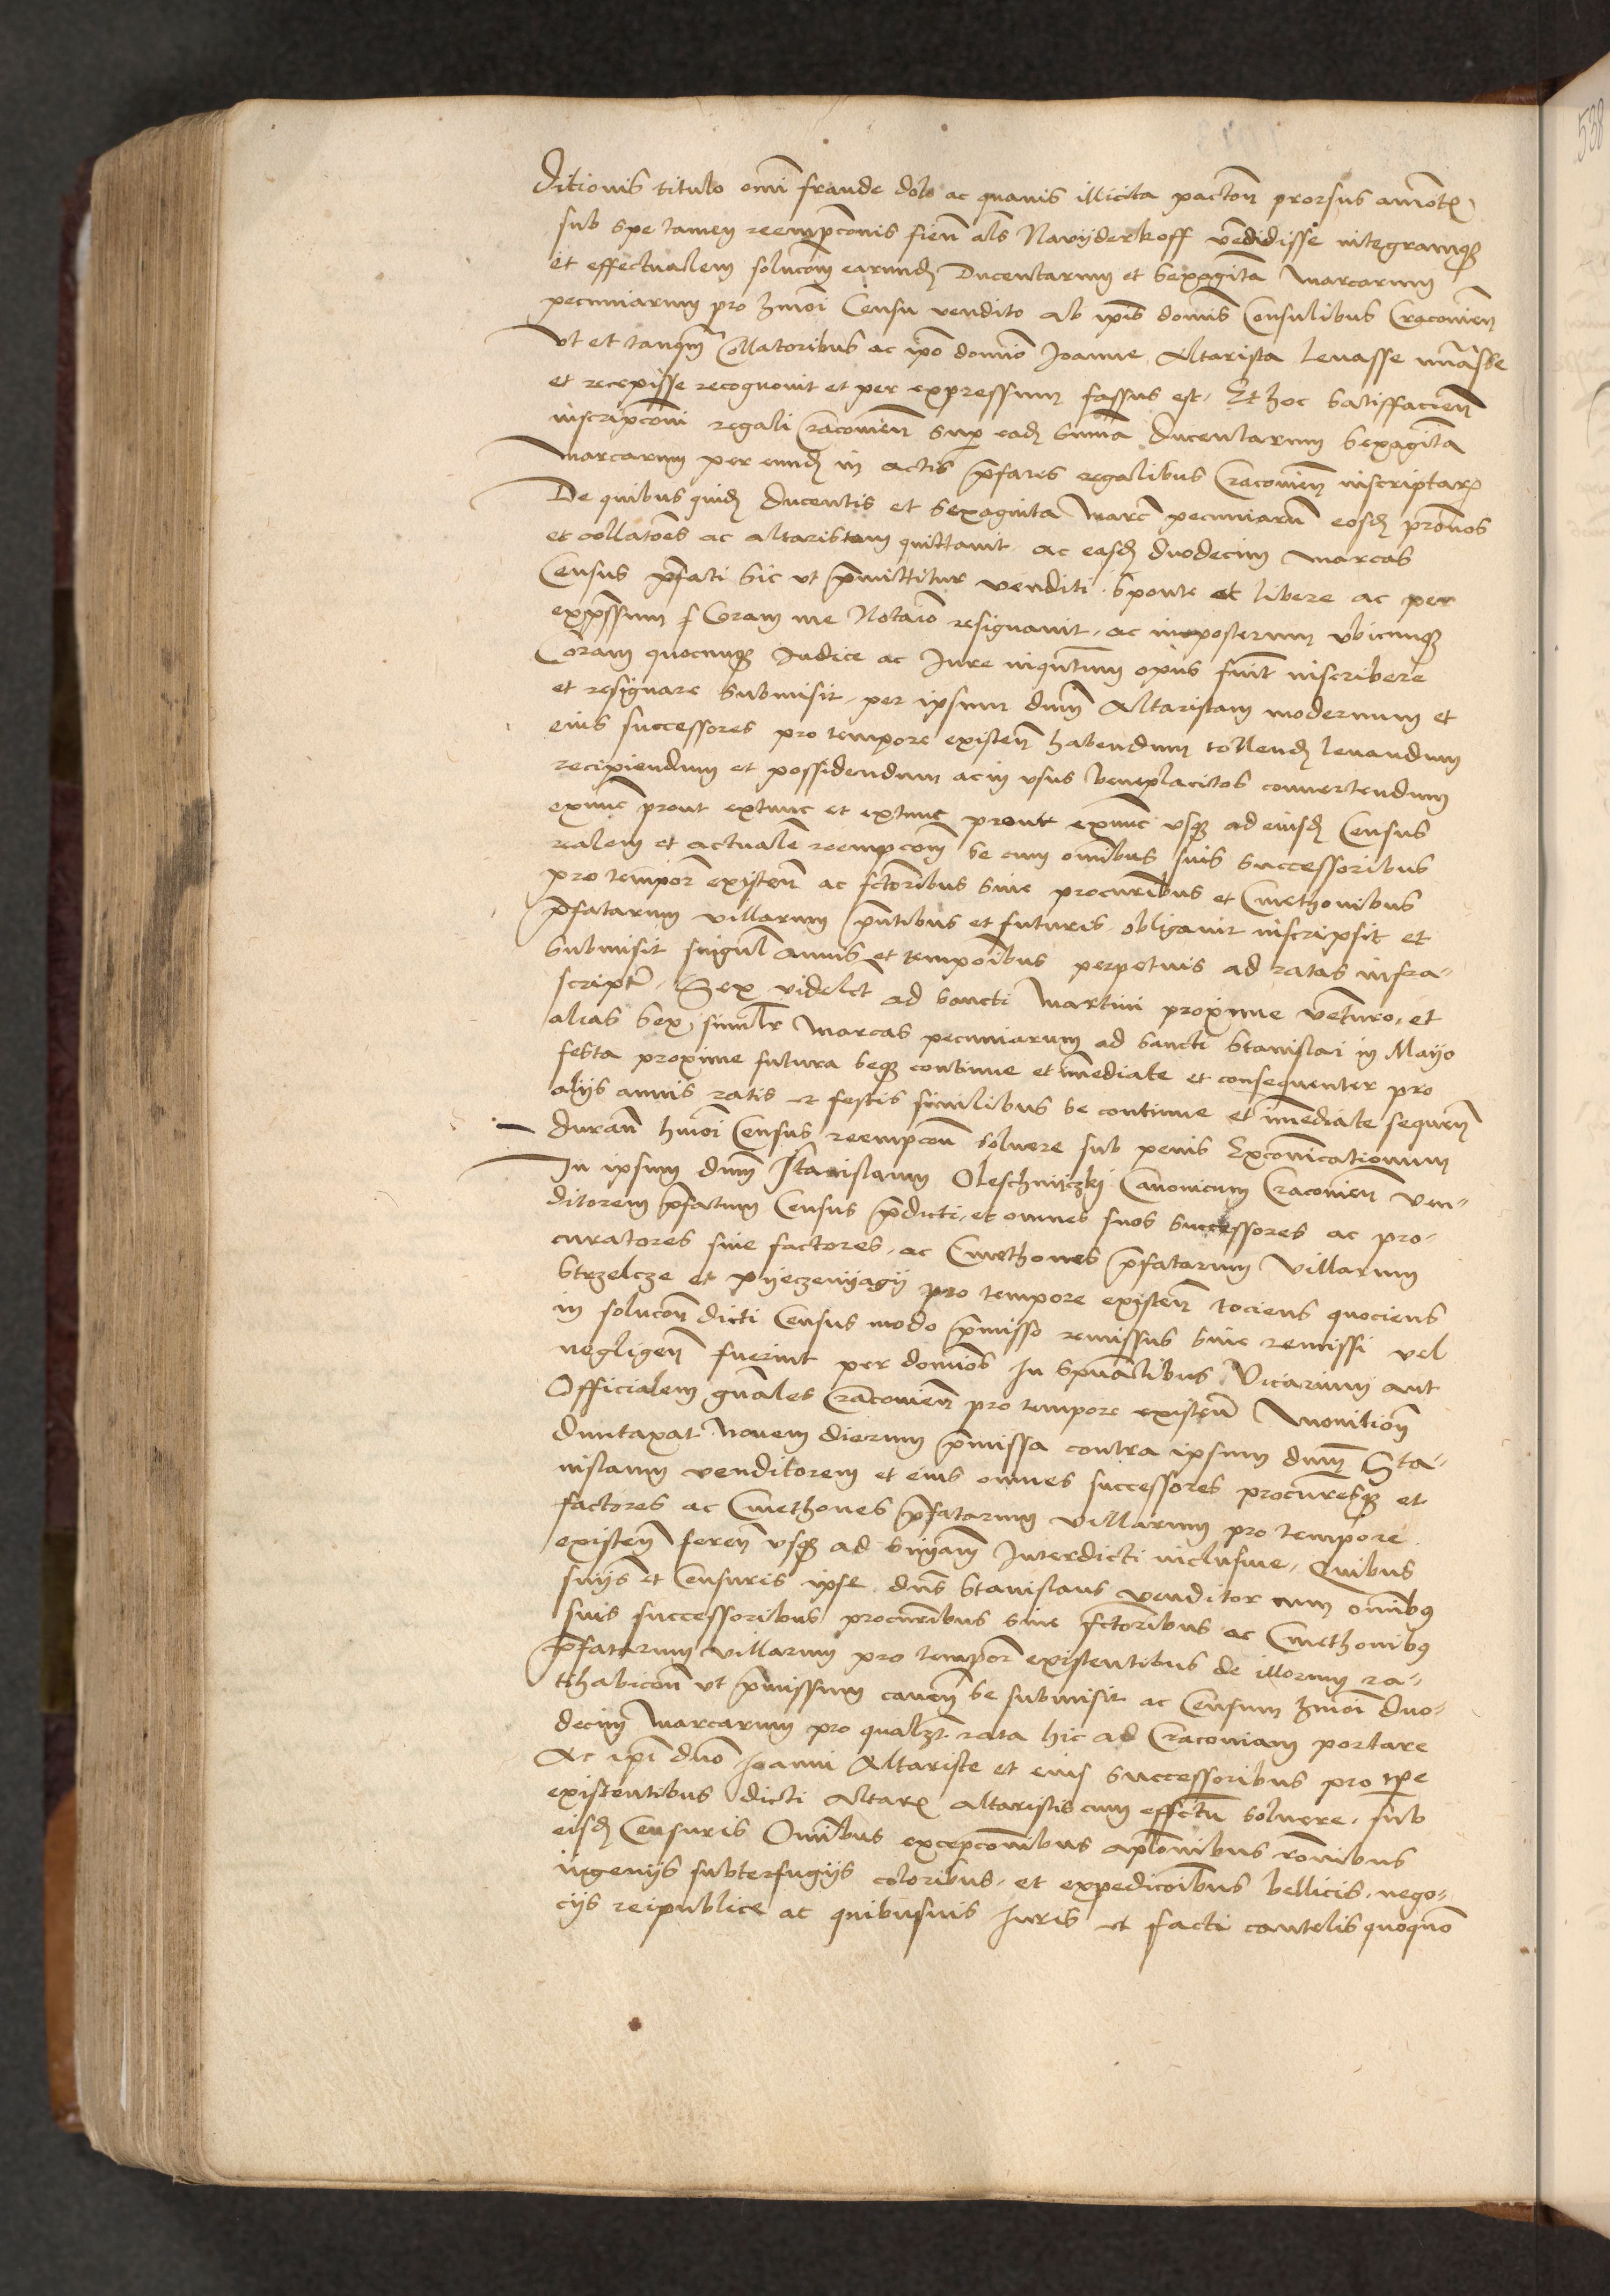 ditionis titulo omi fraude dolo ac quauis illicita pactõn prorsus amot̃
sub spe tamen reempc̃onis fieñ als Nawyderkoff vendidisse integramq₃
et effectualem soluc̃om earund̃ Ducentarum et sexagĩta Marcarum
pecuniarum pro hmõi Censu vendito ab ip̃is dominis Consulibus Cracouieñ
vt et tanq̃m Collatoribus ac ip̃o domĩo Joanne Altarista leuasse
et recepisse recognouit et per expressum fassus est. Et hoc satisfacieñ
inscripc̃oni regali Cracouieñ sup eadẽ suma ducentarum sexagĩta
Marcarum per eund̃ in actis p̃fatis regalibus Cracouieñ inscriptar̃
De quibus quid̃ ducentis et sexaginta Marc̃ pecuniarũ eosd̃ pronos
et collatões ac altaristam quittauit ac easd̃ duodecim marcas
Census p̃fati sic vt p̃mittitur venditi sponte et libere ac per
exp̃ssum Coram me Notario resignauit. ac inposterum vbicunq₃
Coram quocunq₃ Judice ac Jure inqũtum opus fuit̃ inscribere
et resignare submisit. per ipsum dnm̃ Altaristam modernum et
eius successores pro tempore existeñ habendum tollend̃ leuandum
recipiendum et possidendum ac in vsus beneplacitos conuertendum
exnunc prout extunc et extunc prout exnunc vsq₃ ad eiusd̃ Census
realem et actualẽ reempc̃om se cum omibus suis successoribus
pro tempor̃ existeñ ac fctoribus siue procur̃ibus et Cmethonibus
p̃fatarum villarum p̃ntibus et futuris obligauit inscripsit et
submisit singul̃ annis et temporibus perpetuis ad ratas infra-
script̃. Sex videlct̃ ad sancti Martini proxime venturo. et
alias sex simlr̃ Marcas pecuniarum ad sancti Stanislai in Mayo
festa proxime futura seq₃ continue et imediate et consequenter pro
alijs annis ratis et festis similibus se continue et imediate sequeñ
durañ hmõi Census reempc̃om soluere sub penis Excom̃icationum
In ipsum dnm̃ Stanislaum Oleschniczkj Canonicum Cracouieñ ven-
ditorem p̃fatum Census p̃dicti. et omnes suos successores ac pro-
curatores siue factores. ac Cmethones p̃fatarum villarum
Strzelcze et Pyeczenyagy pro tempore existeñ tociens quociens
in soluc̃om dicti Census modo p̃misso remissus siue remissi vel
negligeñ fuerint per domĩos In sp̃ualibus Vicarium aut
Officialem gñales Cracouieñ pro tempore existeñ Monitiom̃
duntaxat Nouem dierum p̃missa contra ipsum dnm̃ Sta-
nislaum venditorem et eius omnes successores procur̃esq₃ et
factores ac Cmethones p̃fatarum villarum pro tempore
existeñ fereñ vsq₃ ad sniam̃ Interdicti inclusiue. Quibus
snijs et Censuris ipse dns̃ Stanislaus venditor cum omib₉
suis successoribus procur̃ibus siue fctoribus ac Cmethonib₉
p̃fatarum villarum pro tempor̃ existentibus de illorum ra-
tihabic̃om vt p̃missum caueñ se submisit ac Censum hmõi duo-
decim Marcarum pro qualzt̃ rata hic ad Cracouiam portare
Ac ip̃i dño Joanni Altariste et eius successoribus pro tp̃e
existentibus dicti Altar̃ altaristis cum effctũ soluere. sub
eisd̃ Censuris Omibus excepc̃onibus aplõnibus rõnibus
ingenijs subterfugijs coloribus. et expedicõibus bellicis. nego-
cijs reipublice ac quibusuis Juris et facti cautelis quoquo